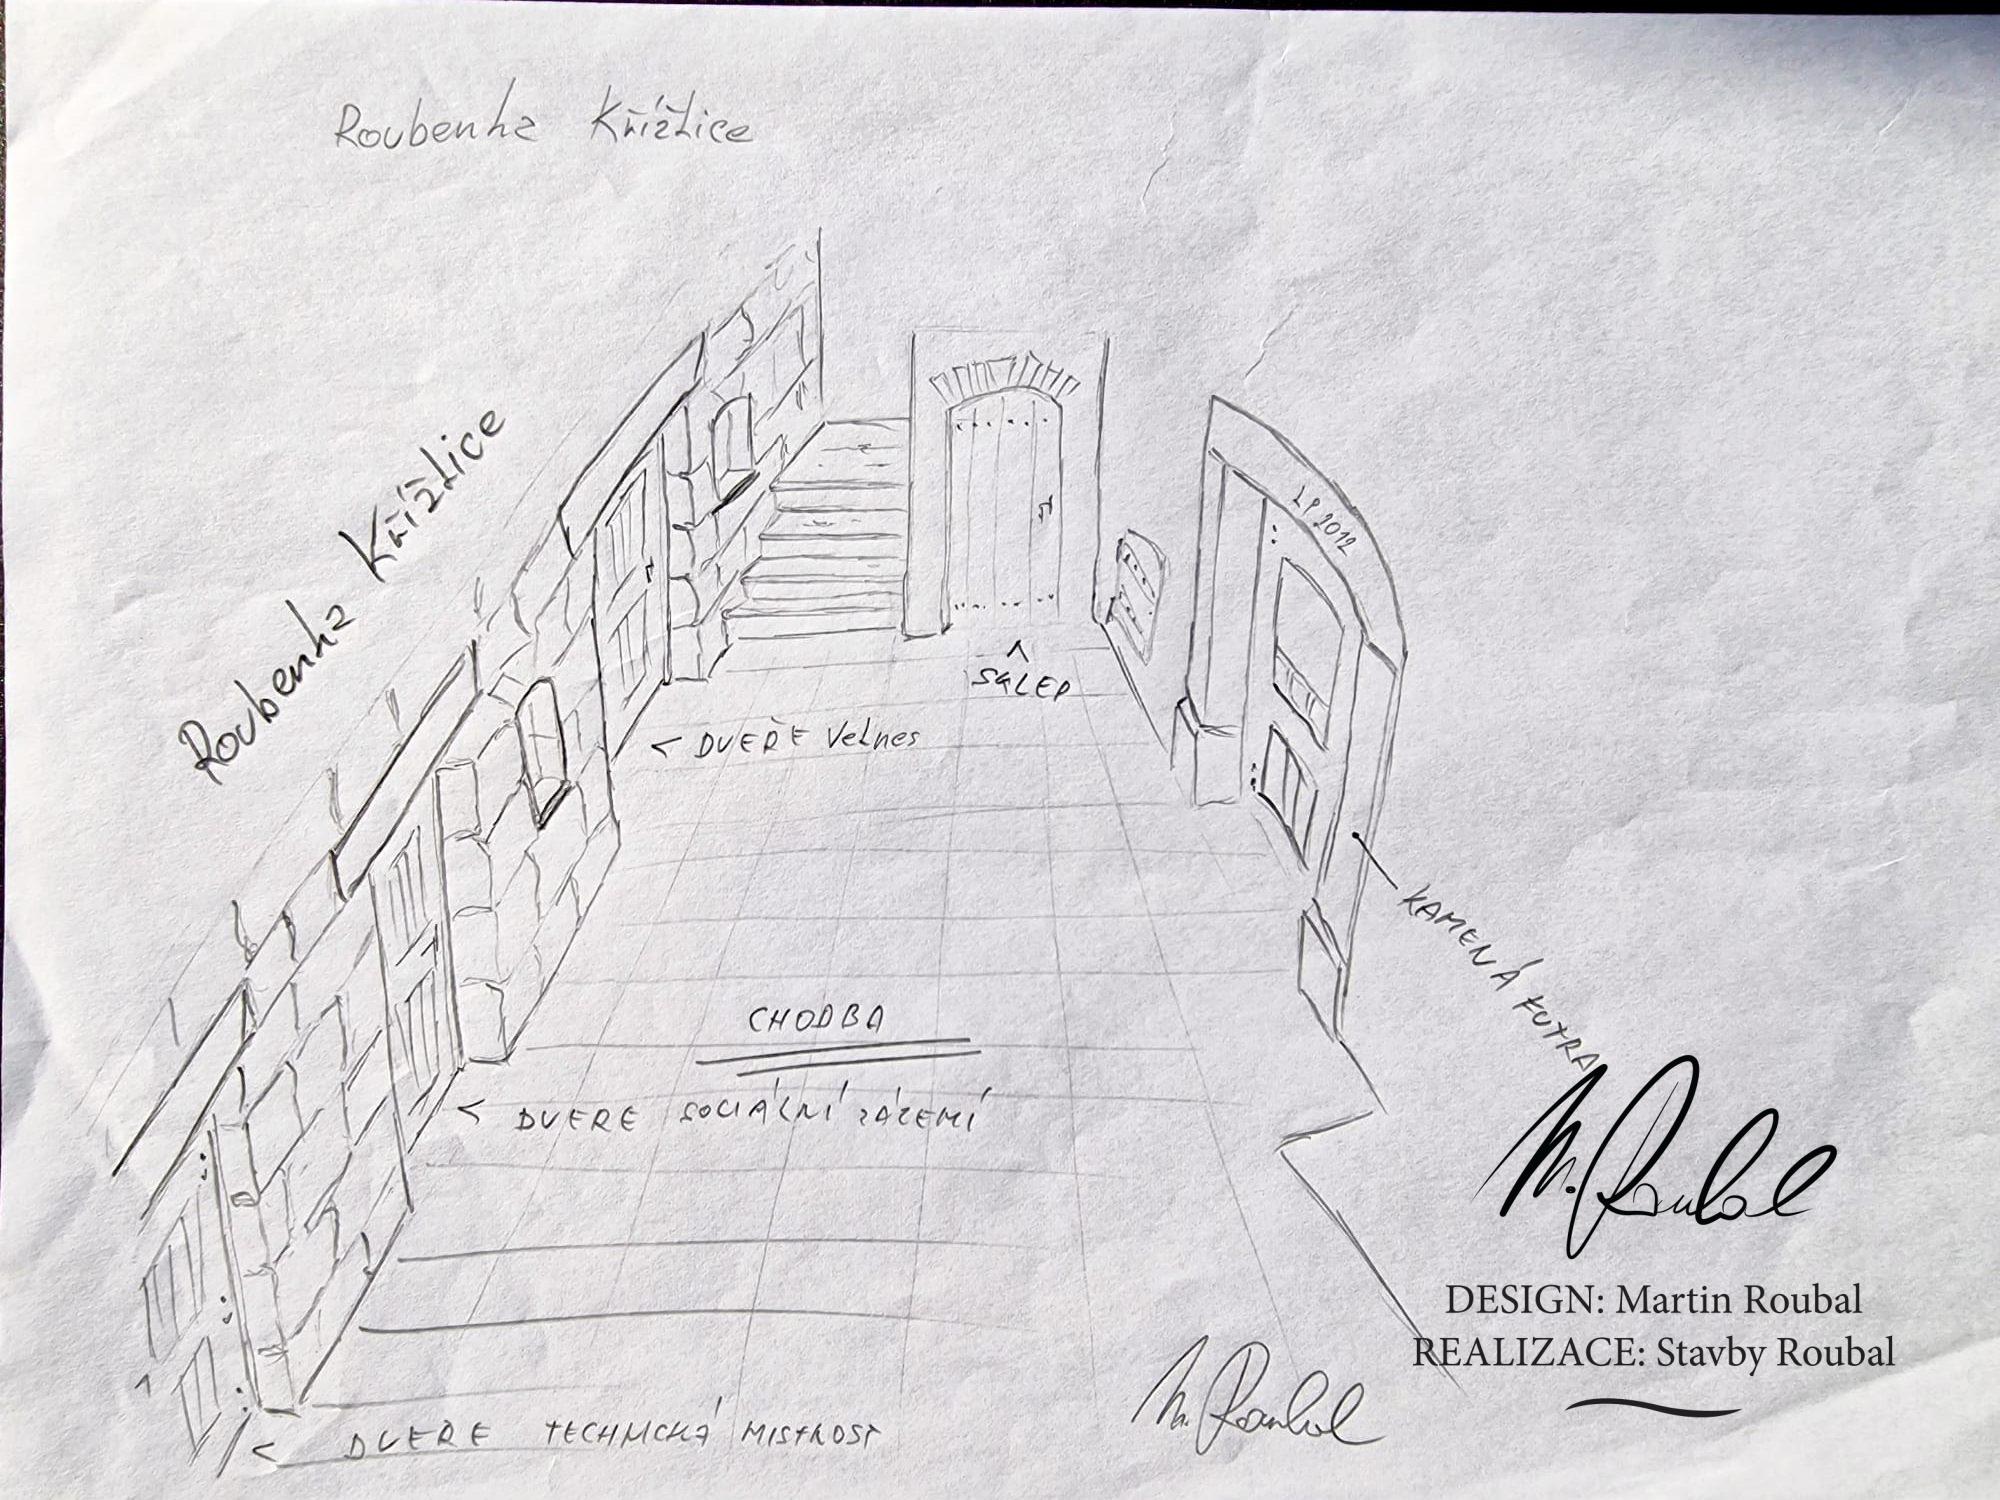 Roubenka Křížlice
Roubenka Křížlice
LP 2012
SKLEP
< DVEŘE Velnes
KAMENÁ FUTRA
CHODBA
< DVERE SOCIÁLNÍ ZÁZEMÍ
M. Roubal
DESIGN: Martin Roubal
REALIZACE: Stavby Roubal
M. Roubal
< DVERE TECHNICKÁ MISTNOST